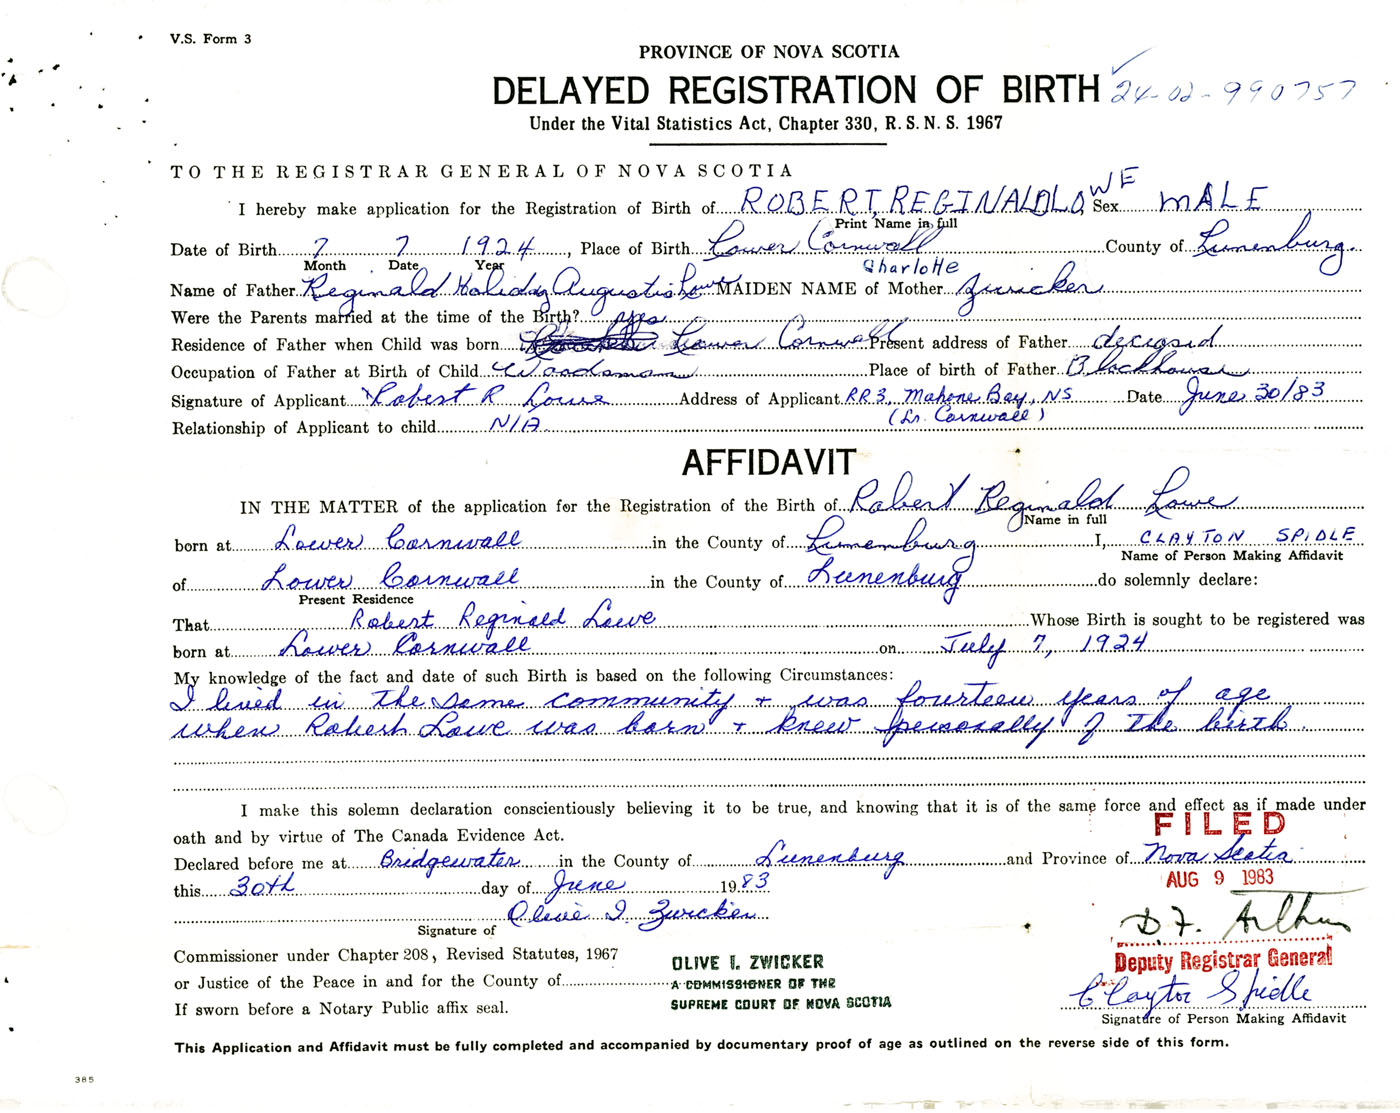 V.S. Form 3
PROVINCE OF NOVA SCOTIA
DELAYED REGISTRATION OF BIRTH 24-02-990757
Under the Vital Statistics Act, Chapter 330, R.S.N.S. 1967
TO THE REGISTRAR GENERAL OF NOVA SCOTIA
I hereby make application for the Registration of Birth of ROBERT REGINALD LOWE Sex MALE
Print Name in full
Date of Birth 7 7 1924, Place of Birth Lower Cornwall County of Lunenburg
Month Date Year Charlotte
Name of Father Reginald Holiday Augustis Lowe MAIDEN NAME of Mother Zwicker
Were the Parents married at the time of the Birth? yes
Residence of Father when Child was born Lower Cornwall Present address of Father decigsid
Occupation of Father at Birth of Child Woodsman Place of birth of Father Blockhouse
Signature of Applicant X Robert R Lowe Address of Applicant RR3, Mahone Bay, NS Date June 30/83
(Lr. Cornwall)
Relationship of Applicant to child N/A
AFFIDAVIT
IN THE MATTER of the application for the Registration of the Birth of Robert Reginald Lowe
Name in full
born at Lower Cornwall in the County of Lunenburg I, CLAYTON SPIDLE
Name of Person Making Affidavit
of Lower Cornwall in the County of Lunenburg do solemnly declare:
Present Residence
That Robert Reginald Lowe Whose Birth is sought to be registered was
born at Lower Cornwall on July 7, 1924
My knowledge of the fact and date of such Birth is based on the following Circumstances:
I lived in the same community + was fourteen years of age
when Robert Lowe was born + knew personally of the birth.
I make this solemn declaration conscientiously believing it to be true, and knowing that it is of the same force and effect as if made under
oath and by virtue of The Canada Evidence Act.
FILED
Declared before me at Bridgewater in the County of Lunenburg and Province of Nova Scotia
AUG 9 1983
this 30th day of June 1983
Olive I. Zwicker
Signature of
D.F. Arthur
Deputy Registrar General
Commissioner under Chapter 208, Revised Statutes, 1967
or Justice of the Peace in and for the County of
If sworn before a Notary Public affix seal.
OLIVE I. ZWICKER
A COMMISSIONER OF THE
SUPREME COURT OF NOVA SCOTIA
Clayton Spidle
Signature of Person Making Affidavit
This Application and Affidavit must be fully completed and accompanied by documentary proof of age as outlined on the reverse side of this form.
385